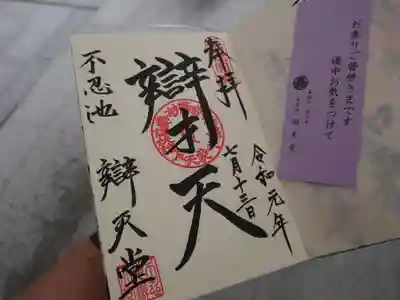 奉拝
令和元年
七月十三日
辯才天
不忍池
辯天堂
お参りご苦労さまです
道中お気をつけて